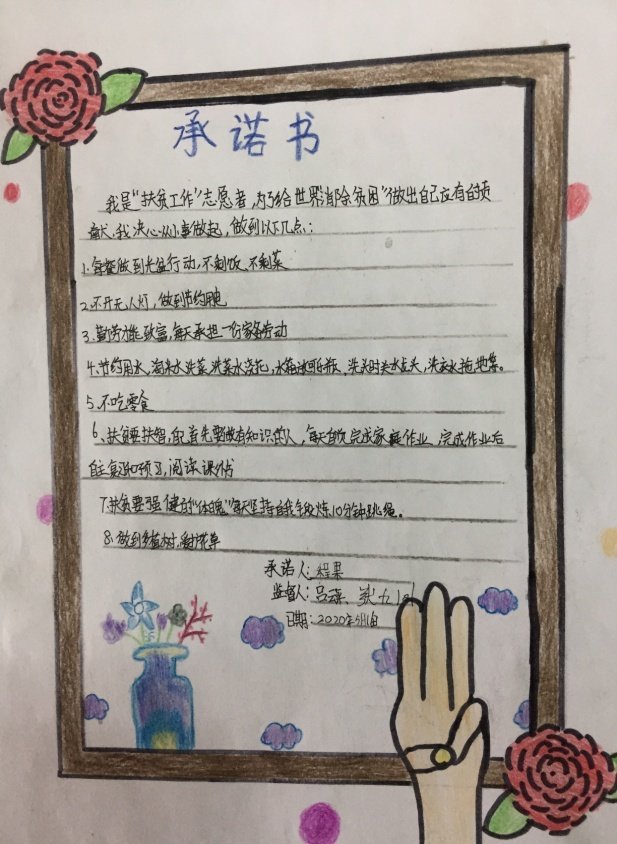 承诺书
我是“扶贫工作”志愿者,为了给世界消除贫困”做出自己应有的贡
献.我决心从小事做起,做到以下几点:
1.每餐做到光盘行动,不剩饭、不剩菜
2.不开无人灯,做到节约用电
3.勤劳才能致富,每天承担一份家务劳动
4.节约用水,淘米水洗菜,洗菜水浇花,水箱放可乐瓶,洗头时关水龙头,洗衣水拖地等。
5.不吃零食
6、扶贫要扶智,自己首先要做有知识的人,每天自觉完成家庭作业,完成作业后
自主复习和预习,阅读课外书
7.扶贫要强健的“体魄”每天坚持自我锻炼10分钟跳绳。
8.做到多植树,爱护花草
承诺人:程果
监督人:吕燕
日期:2020年